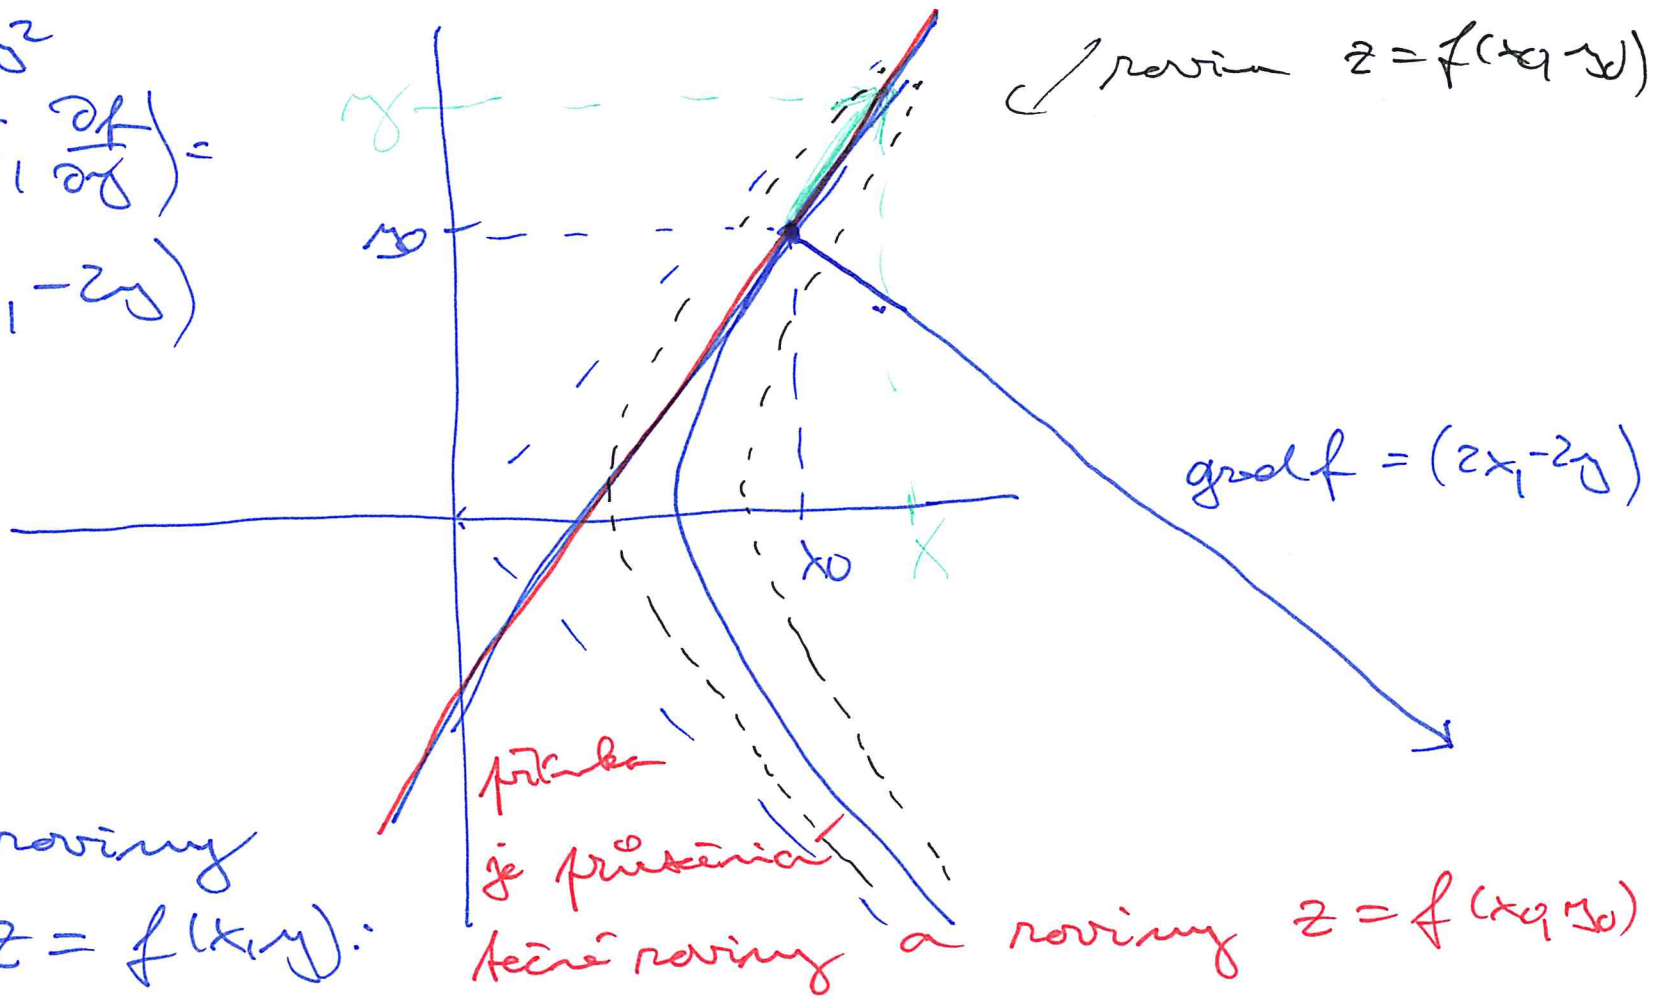 y²
, ∂f/∂y) =
, -2y)
rovina z = f(x0, y0)
y
y0
grad f = (2x, -2y)
x0
x
přímka
je průsečnicí
tečné roviny a roviny z = f(x0, y0)
roviny
z = f(x,y):